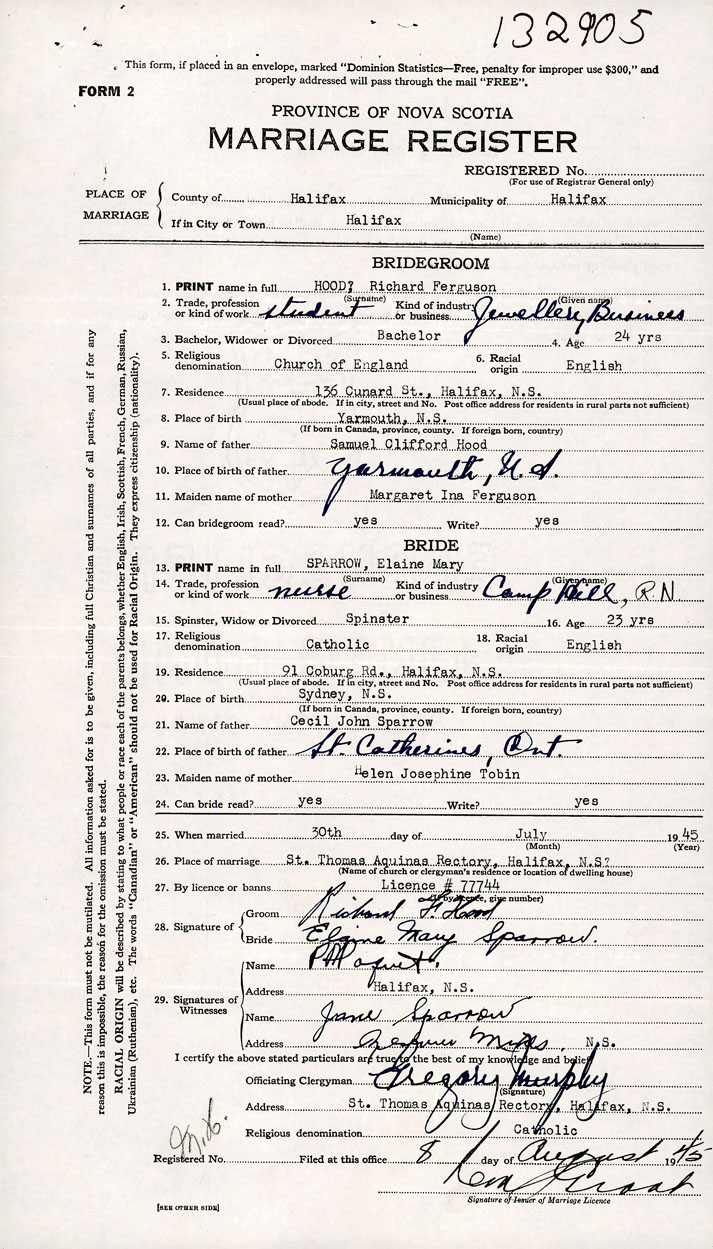 132905
This form, if placed in an envelope, marked "Dominion Statistics—Free, penalty for improper use $300," and
properly addressed will pass through the mail "FREE".
FORM 2
PROVINCE OF NOVA SCOTIA
MARRIAGE REGISTER
REGISTERED No.
(For use of Registrar General only)
PLACE OF MARRIAGE
County of Halifax Municipality of Halifax
If in City or Town Halifax
(Name)
BRIDEGROOM
1. PRINT name in full HOOD? Richard Ferguson
(Surname) (Given name)
2. Trade, profession or kind of work student Kind of industry or business Jewellery Business
3. Bachelor, Widower or Divorced Bachelor 4. Age 24 yrs
5. Religious denomination Church of England 6. Racial origin English
7. Residence 136 Cunard St., Halifax, N.S.
(Usual place of abode. If in city, street and No. Post office address for residents in rural parts not sufficient)
8. Place of birth Yarmouth, N.S.
(If born in Canada, province, county. If foreign born, country)
9. Name of father Samuel Clifford Hood
10. Place of birth of father Yarmouth, N.S.
11. Maiden name of mother Margaret Ina Ferguson
12. Can bridegroom read? yes Write? yes
BRIDE
13. PRINT name in full SPARROW, Elaine Mary
(Surname) (Given name)
14. Trade, profession or kind of work nurse Kind of industry or business Camp Hill, R N
15. Spinster, Widow or Divorced Spinster 16. Age 23 yrs
17. Religious denomination Catholic 18. Racial origin English
19. Residence 91 Coburg Rd., Halifax, N.S.
(Usual place of abode. If in city, street and No. Post office address for residents in rural parts not sufficient)
20. Place of birth Sydney, N.S.
(If born in Canada, province, county. If foreign born, country)
21. Name of father Cecil John Sparrow
22. Place of birth of father St. Catherines, Ont.
23. Maiden name of mother Helen Josephine Tobin
24. Can bride read? yes Write? yes
25. When married 30th day of July 1945
(Month) (Year)
26. Place of marriage St. Thomas Aquinas Rectory, Halifax, N.S?
(Name of church or clergyman's residence or location of dwelling house)
27. By licence or banns Licence # 77744
(If by licence, give number)
28. Signature of
Groom Richard F. Hood
Bride Elaine Mary Sparrow.
29. Signatures of Witnesses
Name
Address Halifax, N.S.
Name Jane Sparrow
Address Mills, N.S.
I certify the above stated particulars are true to the best of my knowledge and belief
Officiating Clergyman Gregory Murphy
(Signature)
Address St. Thomas Aquinas Rectory, Halifax, N.S.
Religious denomination Catholic
Registered No. Filed at this office 8 day of August 1945
Signature of Issuer of Marriage Licence
[SEE OTHER SIDE]
NOTE.—This form must not be mutilated. All information asked for is to be given, including full Christian and surnames of all parties, and if for any
reason this is impossible, the reason for the omission must be stated.
RACIAL ORIGIN will be described by stating to what people or race each of the parents belongs, whether English, Irish, Scottish, French, German, Russian,
Ukrainian (Ruthenian), etc. The words "Canadian" or "American" should not be used for Racial Origin. They express citizenship (nationality).